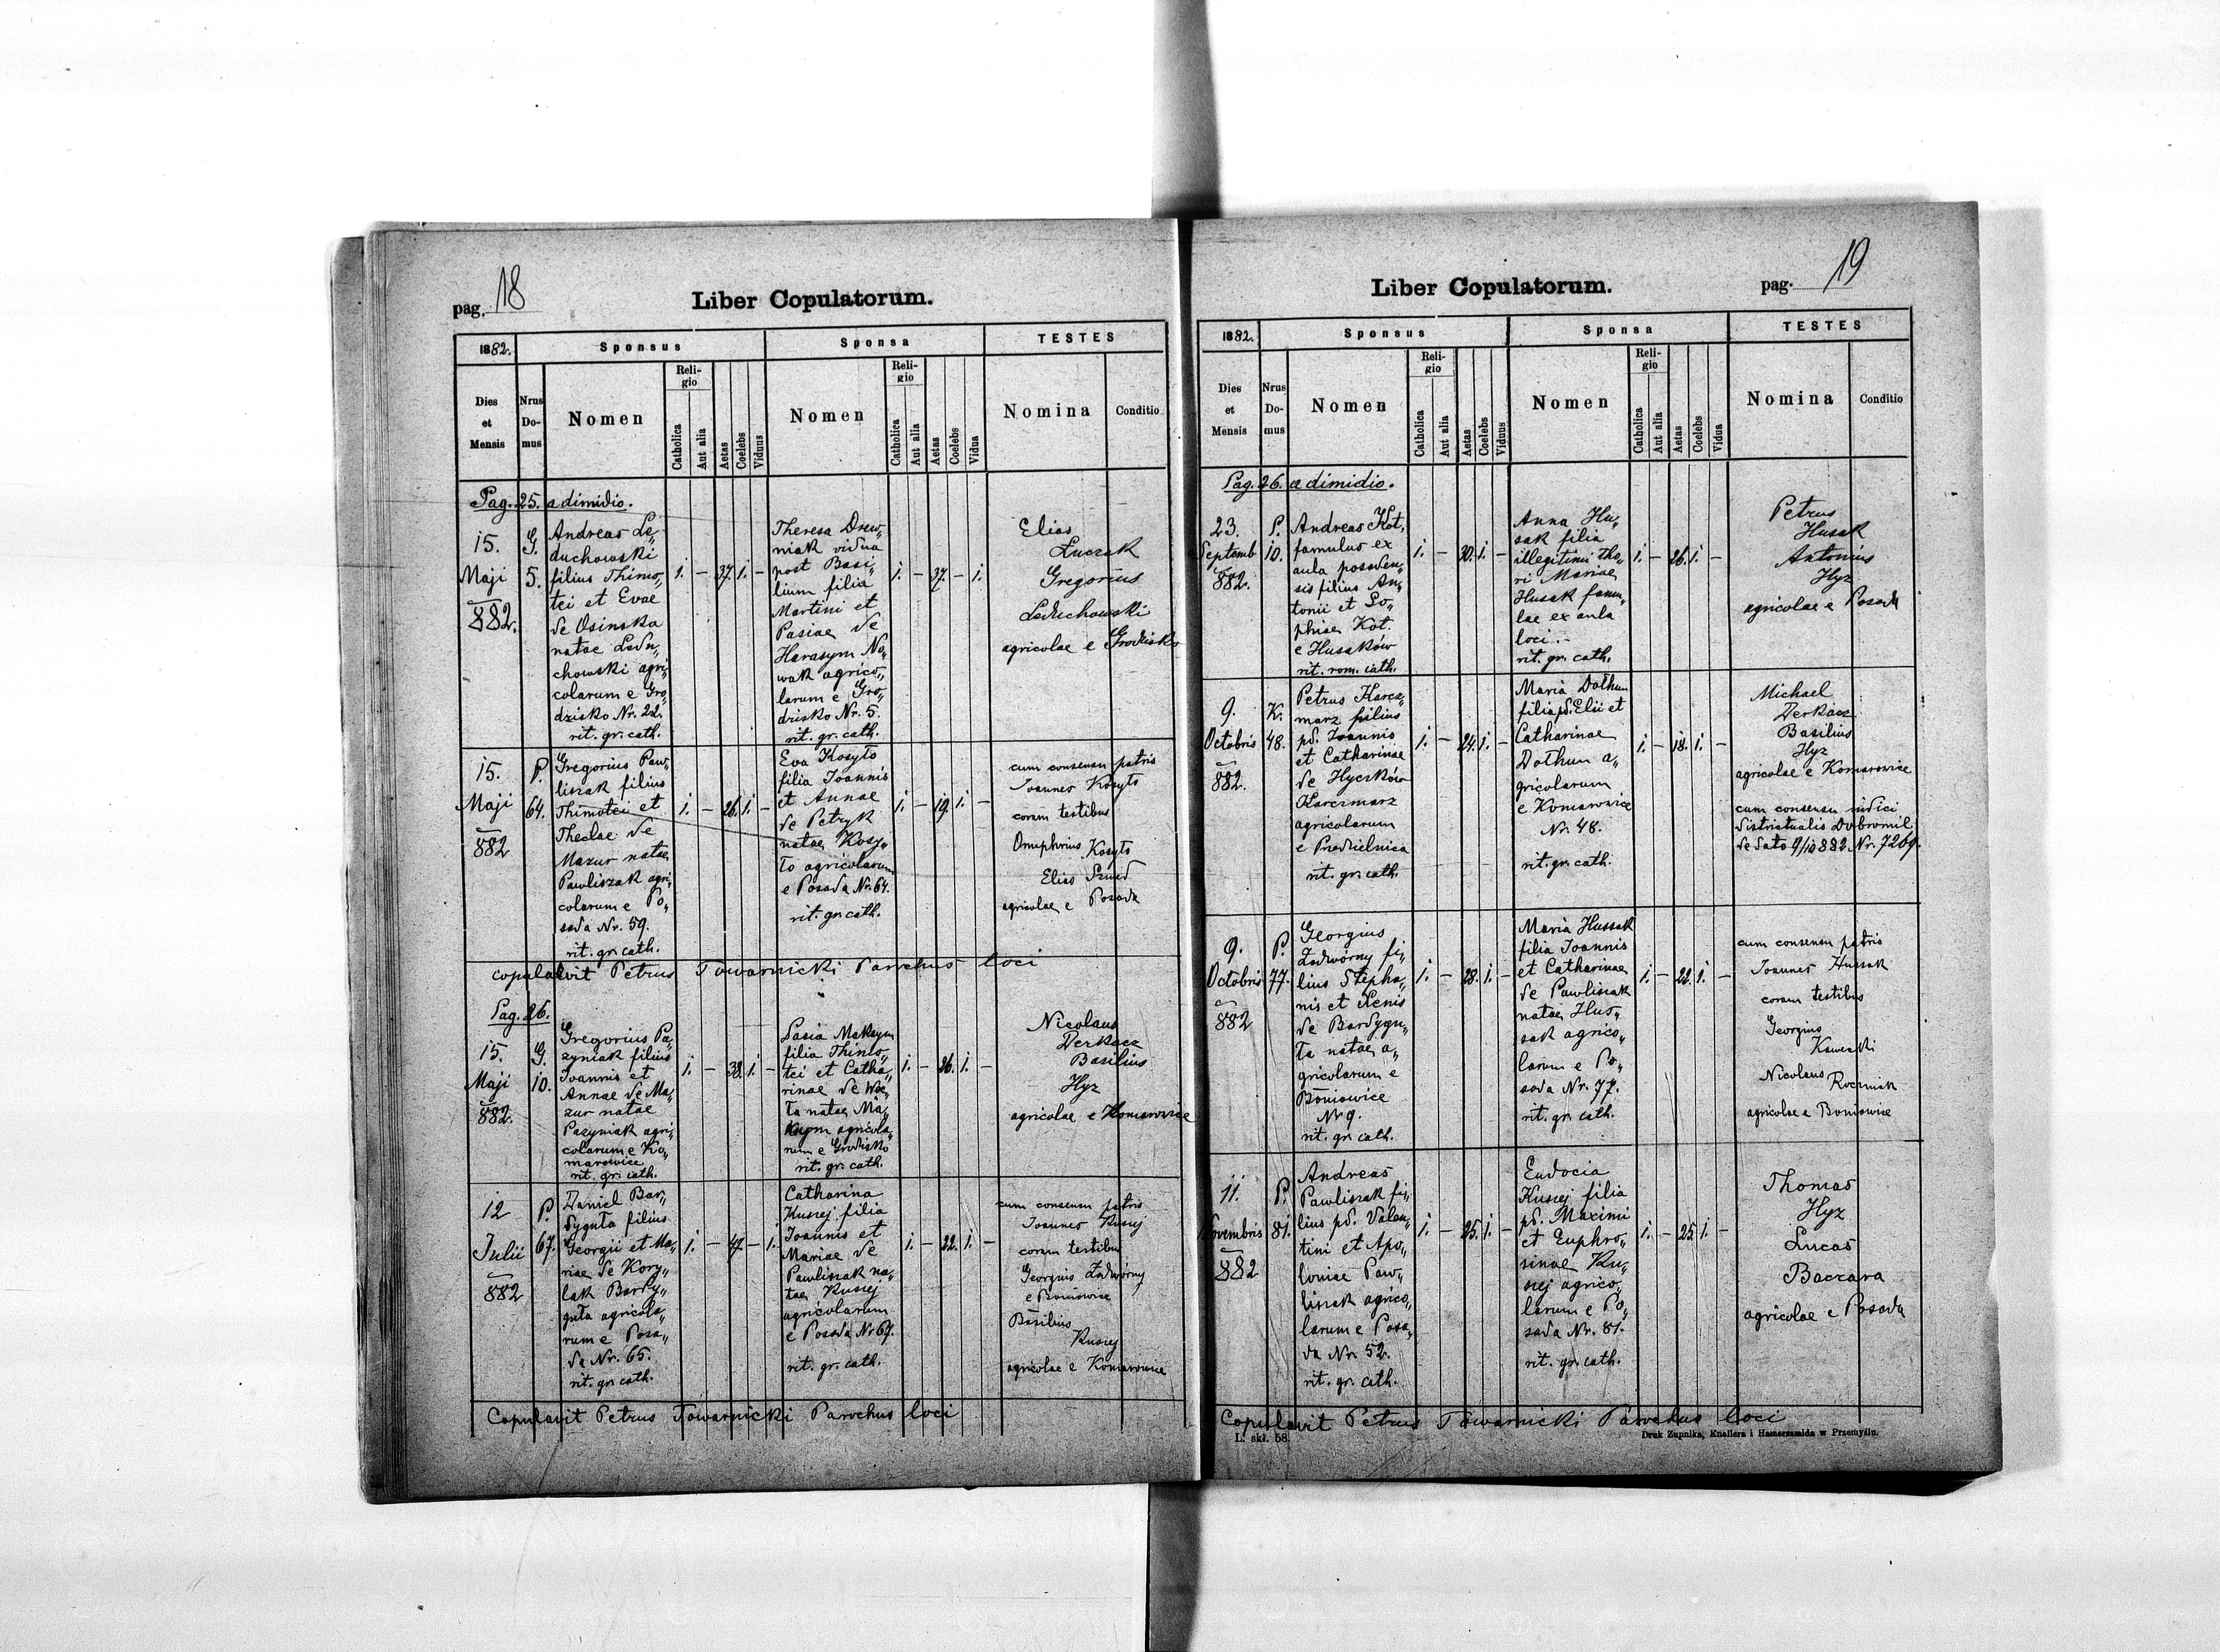 pag. 18
Liber Copulatorum.
1882.
Sponsus
Sponsa
TESTES
Dies et Mensis
Nrus Do-mus
Nomen
Reli-gio
Catholica
Aut alia
Aetas
Coelebs
Viduus
Nomen
Reli-gio
Catholica
Aut alia
Aetas
Coelebs
Vidua
Nomina
Conditio
Pag. 25. a dimidio.
15.
Maji
882.
G.
5.
Andreas Le„
duchowski
filius Thimo„
tei et Evae
de Osinska
natae Ledu„
chowski agri„
colarum e Gro„
dzisko Nr. 22.
rit. gr. cath.
1. — 37. 1. —
Theresa Drew„
niak vidua
post Basi„
lium filia
Martini et
Pasiae de
Harasym No„
wak agrico„
larum e Gro„
dzisko Nr. 5.
rit. gr. cath.
1. — 37. — 1.
Elias
Łuczak
Gregorius
Leduchowski
agricolae e Grodzisko
15.
Maji
882
P.
64.
Gregorius Paw„
liszak filius
Thimotei et
Theclae de
Mazur natae
Pawliszak agri„
colarum e Po„
sada Nr. 59.
rit. gr. cath.
1. — 26. 1. —
Eva Kosyto
filia Joannis
et Annae
de Petryk
natae Kosy„
to agricolarum
e Posada Nr. 64.
rit. gr. cath.
1. — 19. 1. —
cum consensu patris
Joannes Kosyto
coram testibus
Onuphrius Kosyto
Elias Szwed
agricolae e Posada
copulavit Petrus Towarnicki Parochus loci
Pag. 26.
15.
Maji
882.
G.
10.
Gregorius Pa„
zyniak filius
Joannis et
Annae de Ma„
zur natae
Pazyniak agri„
colarum e Ko„
marowice
rit. gr. cath.
1. — 38. 1. —
Pasia Maksym
filia Thimo„
tei et Catha„
rinae de
ta natae Ma„
ksym agricola„
rum e Grodzisko
rit. gr. cath.
1. — 26. 1. —
Nicolaus
Derkacz
Basilius
Hyz
agricolae e Komarowice
12
Julii
882
P.
67.
Daniel Bar„
dyguta filius
Georgii et Ma„
riae de Kory„
lak Bardy„
guta agricola„
rum e Posa„
da Nr. 65.
rit. gr. cath.
1. — 47. — 1.
Catharina
Kusiej filia
Joannis et
Mariae de
Pawliszak na„
tae Kusiej
agricolarum
e Posada Nr 67.
rit. gr. cath.
1. — 22. 1. —
cum consensu patris
Joannes Kusiej
coram testibus
Georgius Zadwórny
e Boniowice
Basilius
Kusiej
agricolae e Komarowice
Copulavit Petrus Towarnicki Parochus loci
Liber Copulatorum.
pag. 19
1882.
Sponsus
Sponsa
TESTES
Dies et Mensis
Nrus Do-mus
Nomen
Reli-gio
Catholica
Aut alia
Aetas
Coelebs
Viduus
Nomen
Reli-gio
Catholica
Aut alia
Aetas
Coelebs
Vidua
Nomina
Conditio
Pag. 26. a dimidio.
23.
Septemb.
882.
P.
10.
Andreas Kot,
famulus ex
aula posaden„
sis filius An„
tonii et So„
phiae Kot.
e Husaków
rit. rom. cath.
1. — 30. 1. —
Anna Hu„
sak filia
illegitimi tho„
ri Mariae
Husak famu„
lae ex aula
loci.
rit. gr. cath.
1. — 26. 1. —
Petrus
Husak
Antonius
Hyz
agricolae e Posada
9.
Octobris
882.
K.
48.
Petrus Karcz„
marz filius
pd. Joannis
et Catharinae
de Hyczków
Karczmarz
agricolarum
e Przedzielnica
rit. gr. cath.
1. — 24. 1. —
Maria Dołhun
filia pd. Elii et
Catharinae
Dołhun a„
gricolarum
e Komarowice
Nr. 48.
rit. gr. cath.
1. — 18. 1. —
Michael
Derkacz
Basilius
Hyz
agricolae e Komarowice
cum consensu iudici
districtualis Dobromil
de dato 9/10 882. Nr. 7269.
9.
Octobris
882
P.
77.
Georgius
Zadwórny fi„
lius Stepha„
nis et Xenis
de Bardygu„
ta natae a„
gricolarum e
Boniowice
Nr 9.
rit. gr. cath.
1. — 28. 1. —
Maria Hussak
filia Joannis
et Catharinae
de Pawliszak
natae Hus„
sak agrico„
larum e Po„
sada Nr. 77.
rit. gr. cath.
1. — 22. 1. —
cum consensu patris
Joannes Hussak
coram testibus
Georgius
Nicolaus
Roczniak
agricolae e Boniowice
11.
Novembris
882
P.
81.
Andreas
Pawliszak fi„
lius pd. Valen„
tini et Apo„
loniae Paw„
liszak agrico„
larum e Posa„
da Nr. 52.
rit. gr. cath.
1. — 25. 1. —
Eudocia
Kusiej filia
pd. Maximi
et Euphro„
sinae Ku„
siej agrico„
larum e Po„
sada Nr. 81.
rit. gr. cath.
1. — 25. 1. —
Thomas
Hyz
Lucas
Baczara
agricolae e Posada
Copulavit Petrus Towarnicki Parochus loci
L. skł. 58.
Druk Żupnika, Knollera i Hamerszmida w Przemyślu.